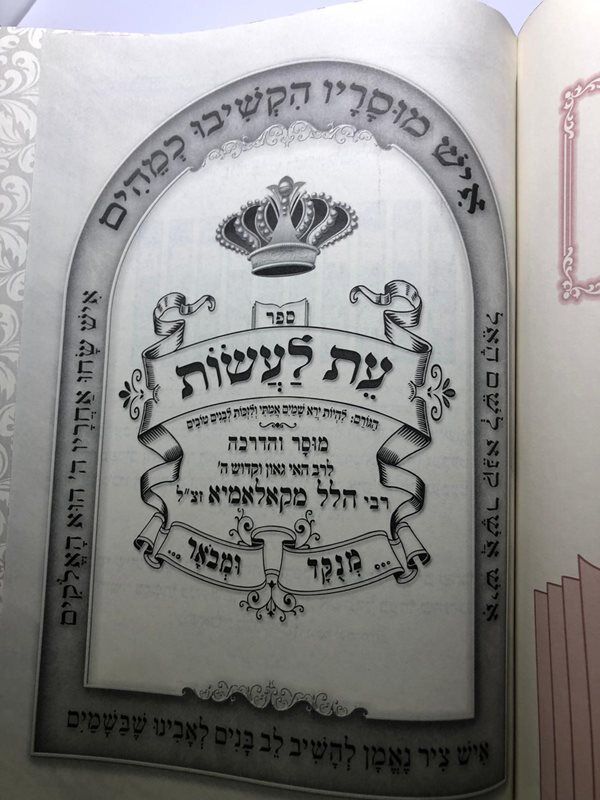 אִישׁ מוּסָרָיו הִקְשִׁיבוּ כְּמֵהִים
אִישׁ אֲשֶׁר קִנֵּא לְשֵׁם הָאֵל
אִישׁ שָׂחוּ אַחֲרָיו ה' הוּא הָאֱלֹקִים
אִישׁ צִיר נֶאֱמָן לְהָשִׁיב לֵב בָּנִים לְאָבִינוּ שֶׁבַּשָּׁמַיִם
ספר
עֵת לַעֲשׂוֹת
הַגּוֹרֵם: לִהְיוֹת יְרֵא שָׁמַיִם אֲמִתִּי וְלִזְכּוֹת לְבָנִים טוֹבִים
מוּסָר והדרכה
לרב האי גאון וקדוש ה'
רבי הלל מקאלאמיא זצ"ל
... מְנֻקָּד
וּמְבֹאָר ...